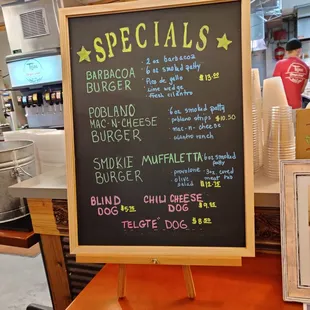 SPECIALS
BARBACOA
BURGER
- 2 oz barbacoa
- 6 oz smoked patty
- Pico de gallo
- lime wedge
- Fresh cilantro
$13.00
POBLANO
MAC-N-CHEESE
BURGER
6oz smoked patty
poblano strips
mac-n-cheese
cilantro ranch
$10.50
SMOKIE MUFFALETTA
BURGER
6oz smoked
patty
provolone
olive
salad
3 cured
meat
$12.75
BLIND
DOG
CHILI CHEESE
DOG
TELGTE DOG